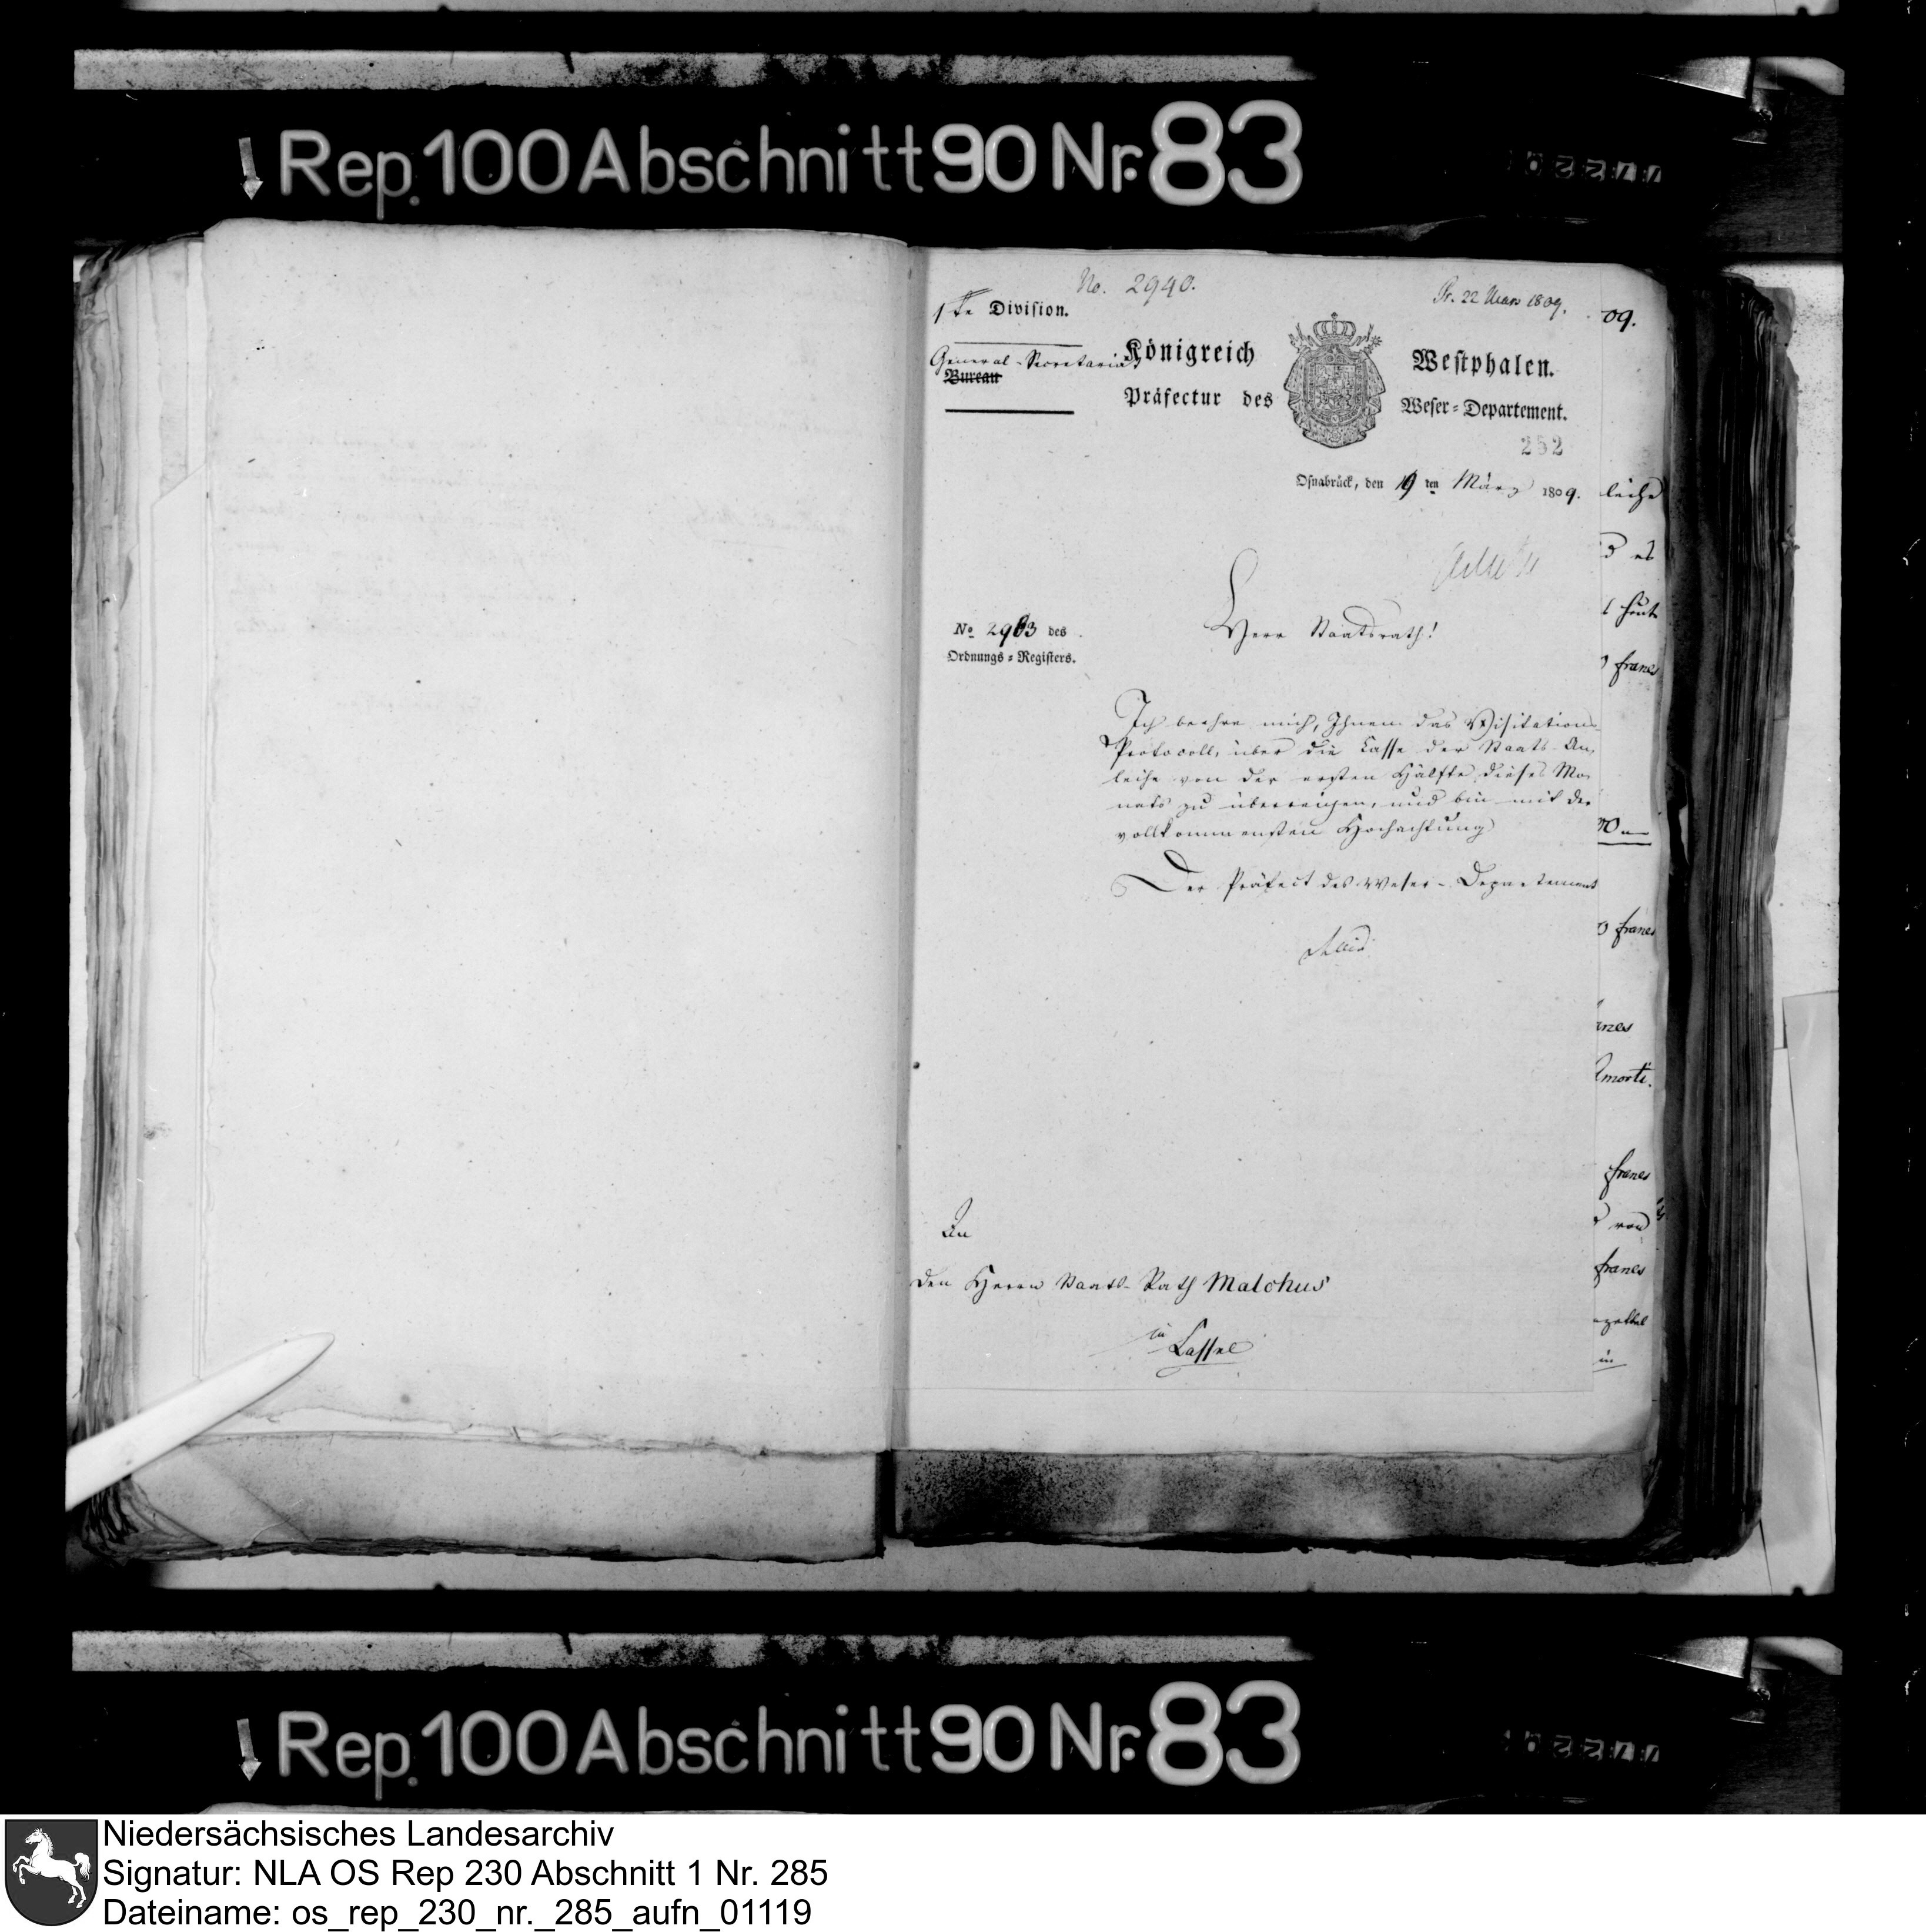 Rep. 100 Abschnitt 90 Nr. 83
No. 2940.
Pr. 22 März 1809.
1te Division.
General-Secretariat
Bureau
Königreich Westphalen.
Präfectur des Weser-Departement.
252
Osnabrück, den 19 ten März 1809.
No 2963 des
Ordnungs-Registers.
Herr Staatsrath!
Ich beehre mich, Ihnen das Visitations-
Protocoll, über die Casse der Staats-An-
leihe von der ersten Hälfte dieses Mo-
nats zu überreichen, und bin mit der
vollkommensten Hochachtung
Der Präfect des Weser-Departements
An
den Herrn Staats-Rath Malchus
in Cassel
09.
francs
francs
Amorti.
francs
von
francs
in
Rep. 100 Abschnitt 90 Nr. 83
Niedersächsisches Landesarchiv
Signatur: NLA OS Rep 230 Abschnitt 1 Nr. 285
Dateiname: os_rep_230_nr._285_aufn_01119